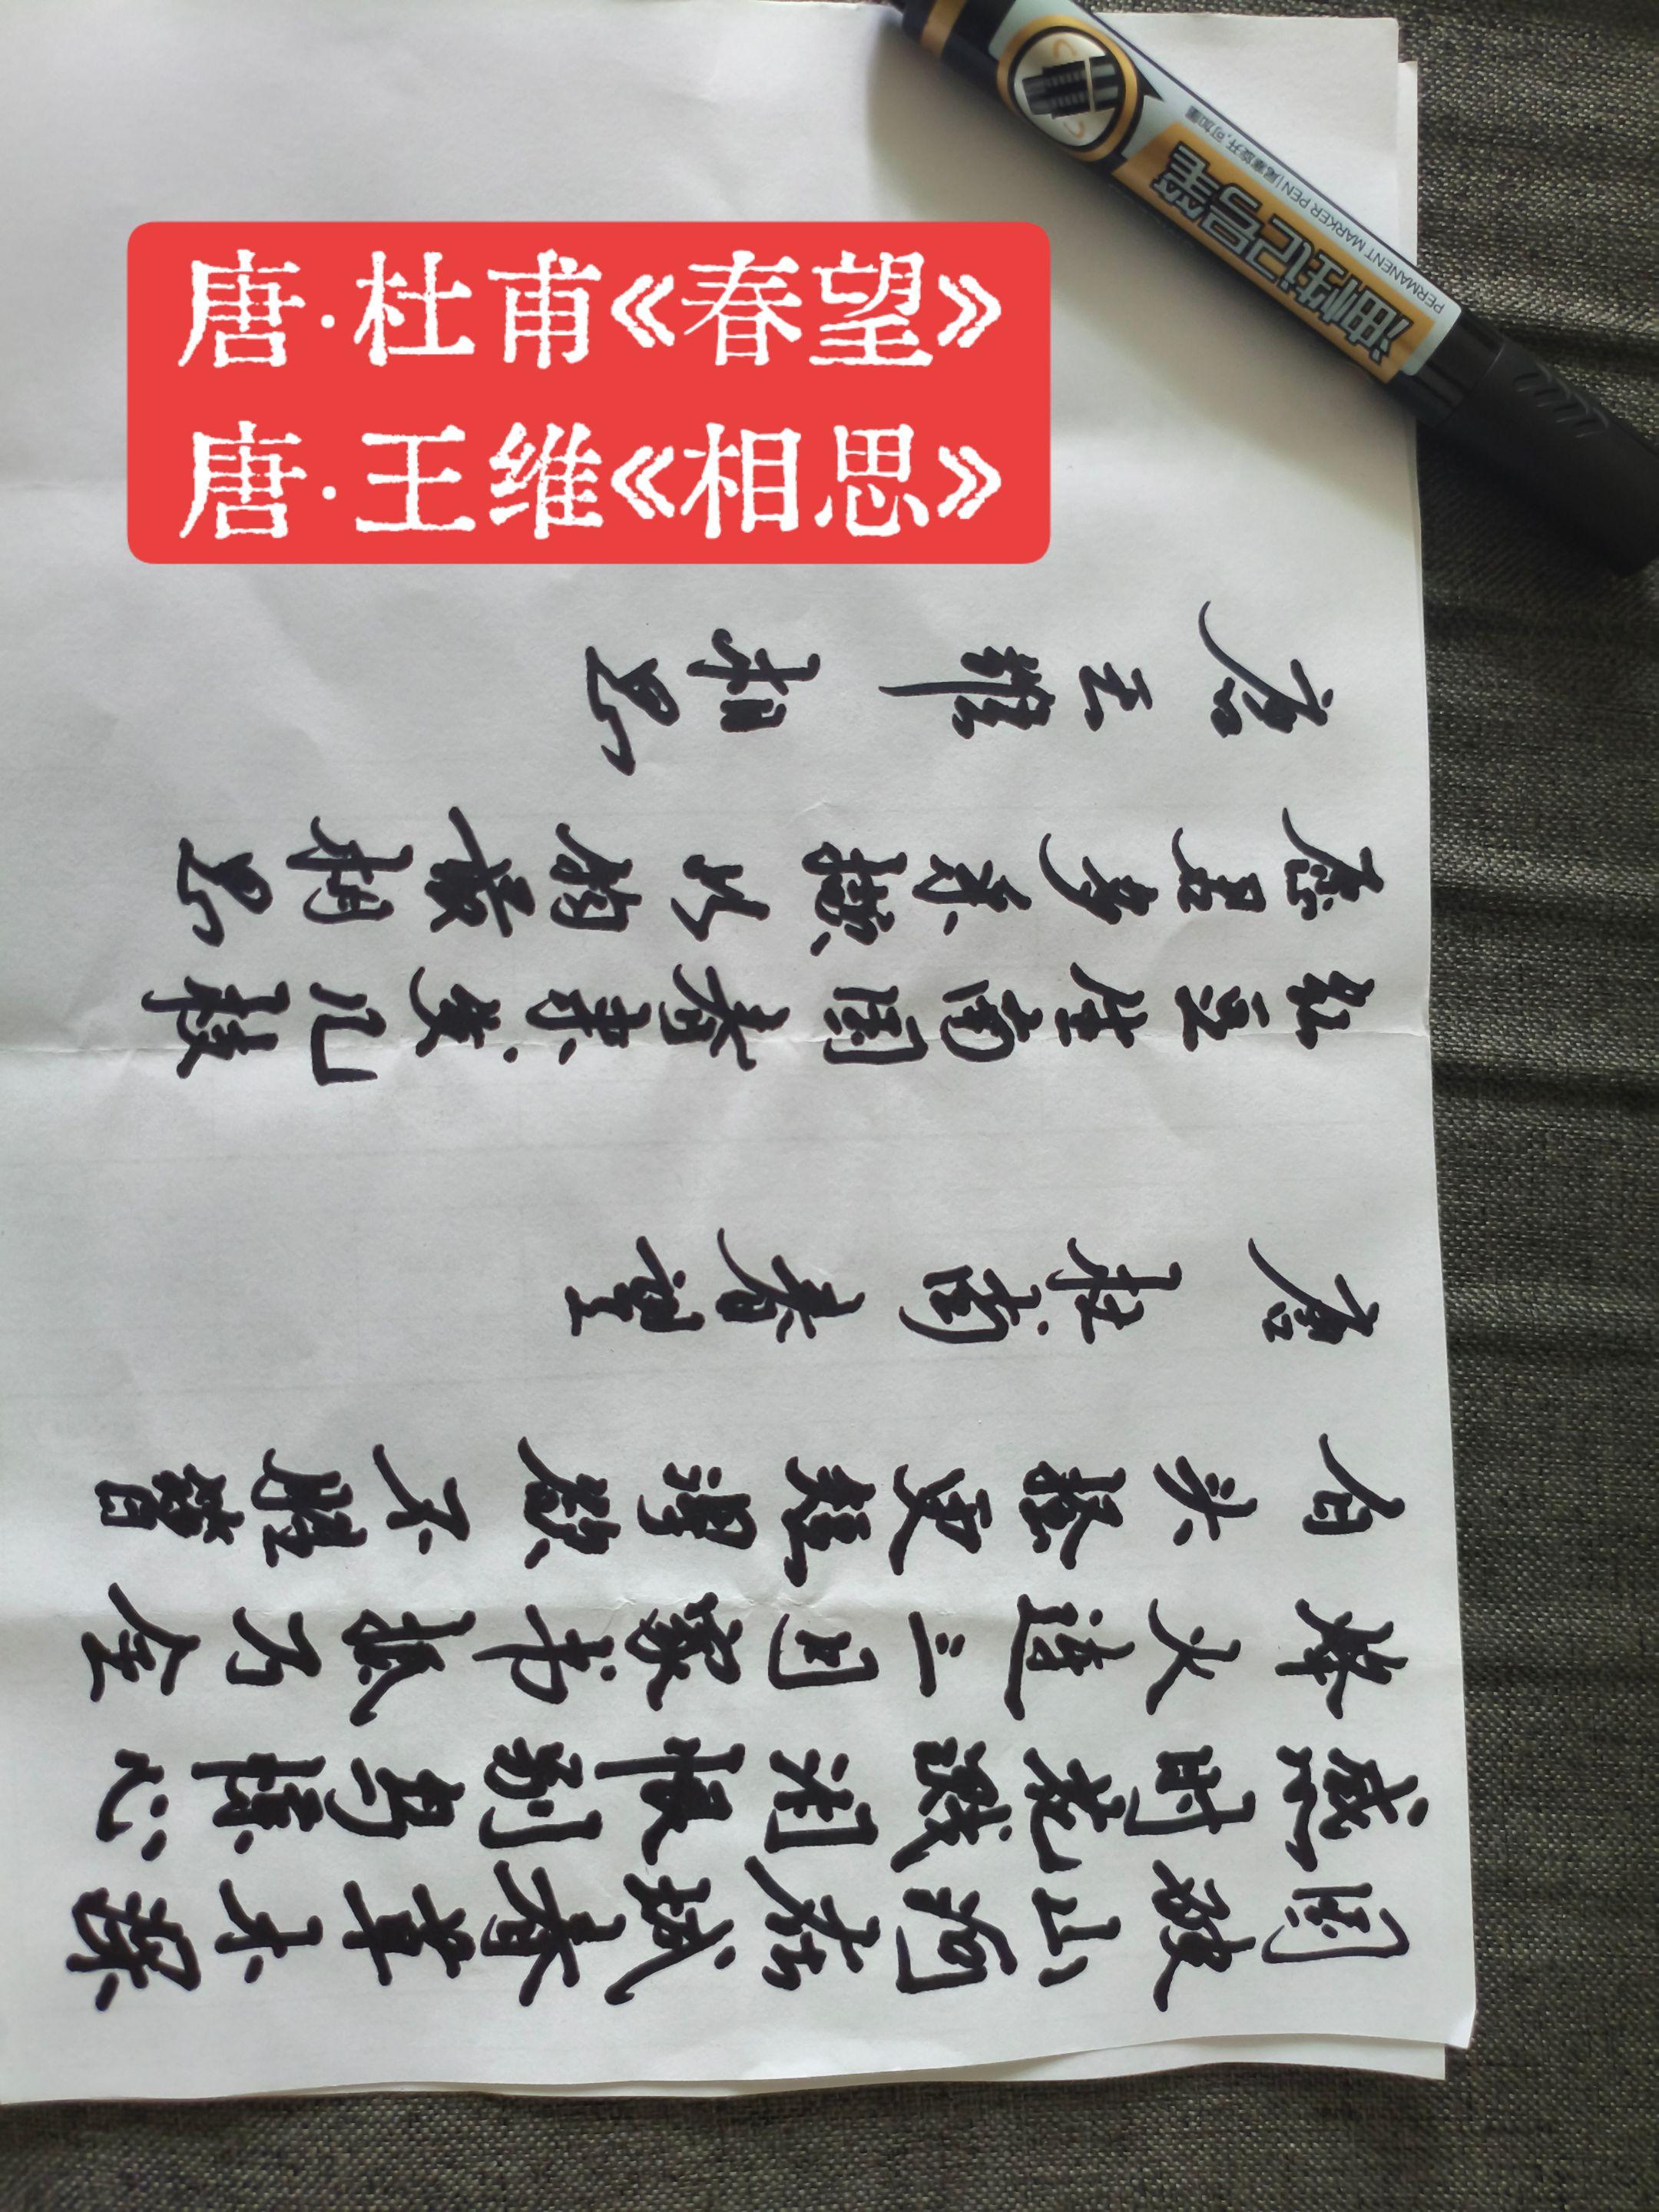 唐·杜甫《春望》
唐·王维《相思》
国破山河在城春草木深
感时花溅泪恨别鸟惊心
烽火连三月家书抵万金
白头搔更短浑欲不胜簪
唐 杜甫 春望
红豆生南国春来发几枝
愿君多采撷此物最相思
唐 王维 相思
油性记号笔
PERMANENT MARKER PEN|尾塞旋开,可加墨